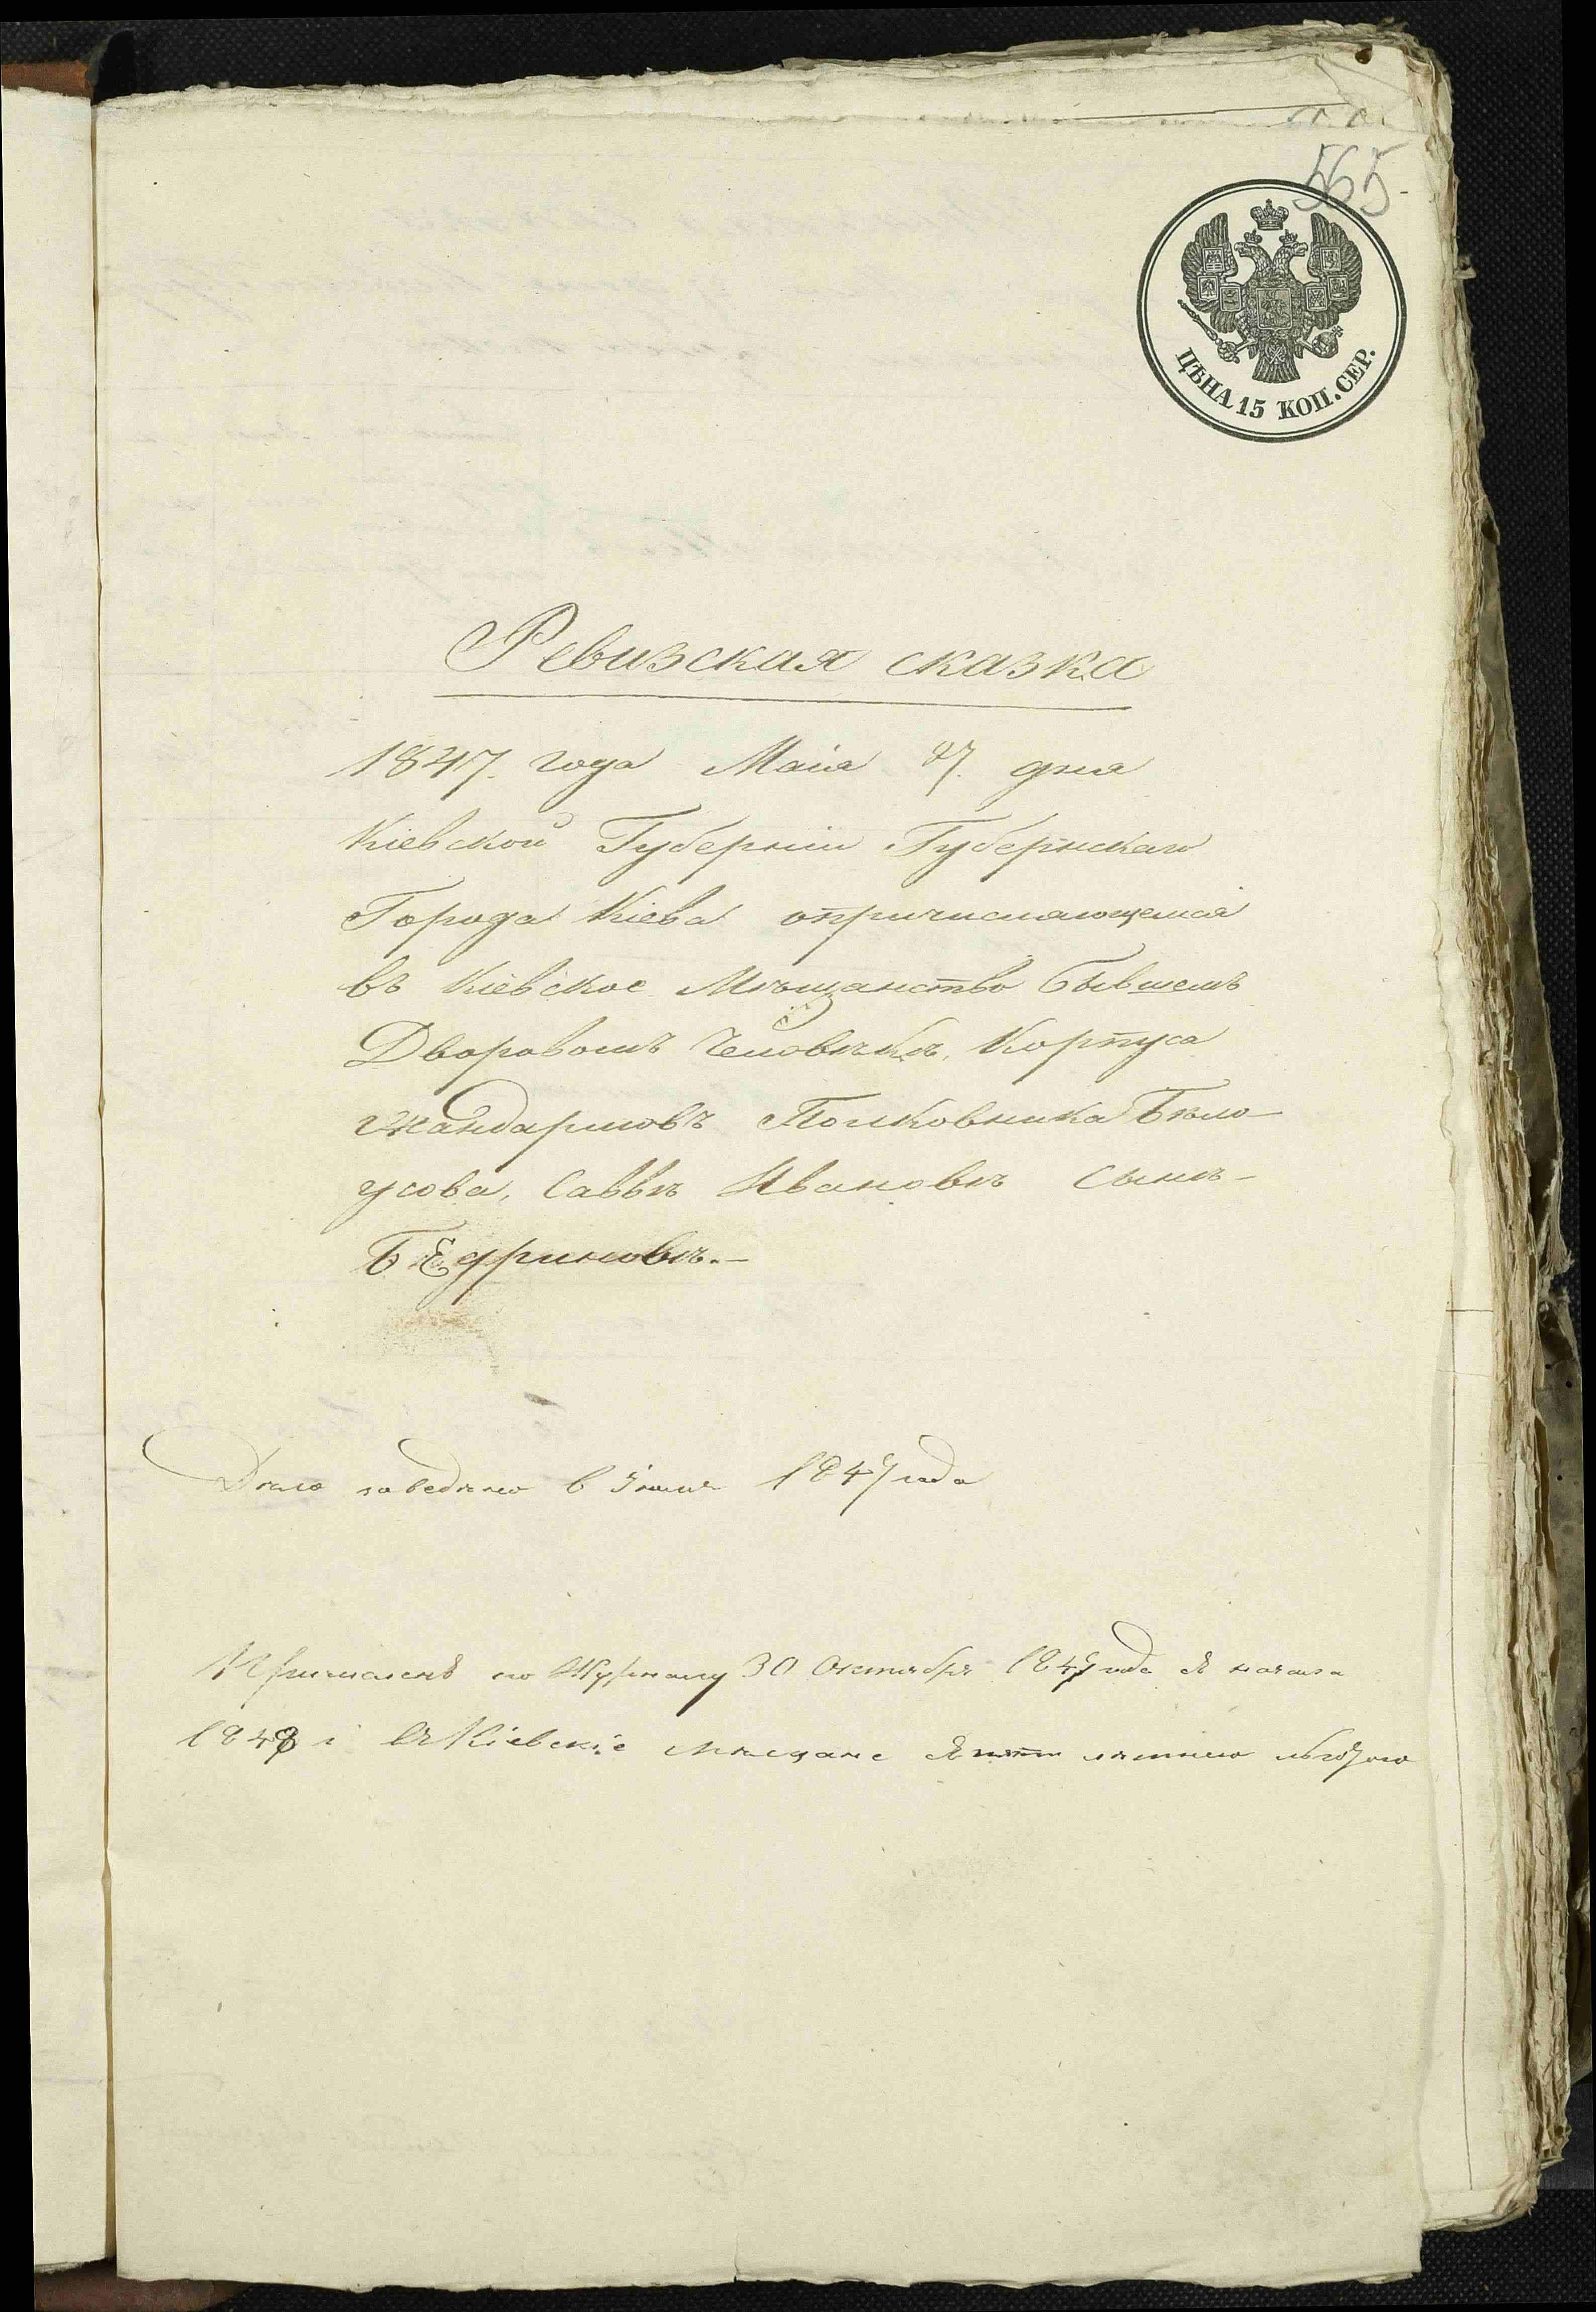 565
ЦѢНА 15 КОП. СЕР.
Ревизская сказка
1847. года Маія 27. дня
Кіевской Губерніи Губернскаго
Города Кіева опричисляющемся
въ Кіевское Мѣщанство бывшемъ
Дворовомъ Человѣкѣ, Корпуса
Жандармовъ Полковника Бѣло-
усова, Саввѣ Ивановѣ сынѣ-
БЕдриновѣ.-
Дѣло заведено в Іюнѣ 1847 года
Причисленъ по Журналу 30 Октября 1847 года съ начала
1848 г въ Кіевскіе мѣщане съ пяти лѣтнею льготою